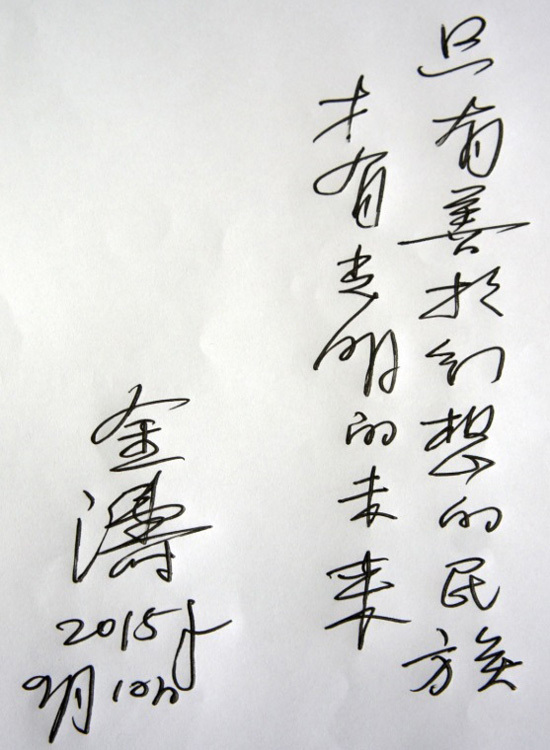 只有善于幻想的民族
才有光明的未来
金濤
2015年
9月10日